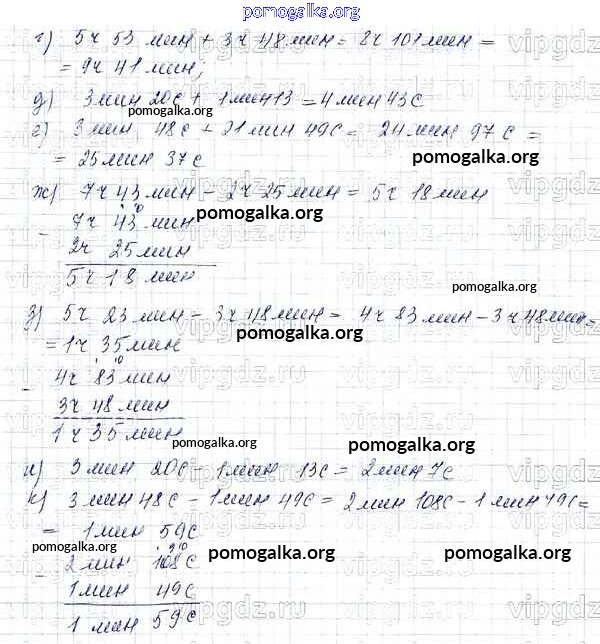 pomogalka.org
г) 5ч 53 мин + 3ч 48мин = 8ч 101мин =
= 9ч 41 мин;
д) 3мин 20с + 1мин13 = 4мин 43с
pomogalka.org
г) 3мин 48с + 21мин 49с = 24мин 97с =
= 25мин 37с
pomogalka.org
ж) 7ч 43мин - 2ч 25мин = 5ч 18мин
10
7ч 43 мин
pomogalka.org
- 2ч 25мин
5ч 18 мин
pomogalka.org
з) 5ч 23мин - 3ч 48мин = 4ч 83мин - 3ч 48мин =
pomogalka.org
= 1ч 35мин
10
4ч 83мин
- 3ч 48мин
1ч 35мин
pomogalka.org
pomogalka.org
и) 3мин 20с - 1мин 13с = 2мин 7с
к) 3мин 48с - 1мин 49с = 2мин 108с - 1мин 49с =
= 1мин 59с
pomogalka.org
9 10
pomogalka.org
pomogalka.org
2мин 108с
- 1мин 49с
pomogalka.org
1 мин 59с
vipgdz.ru